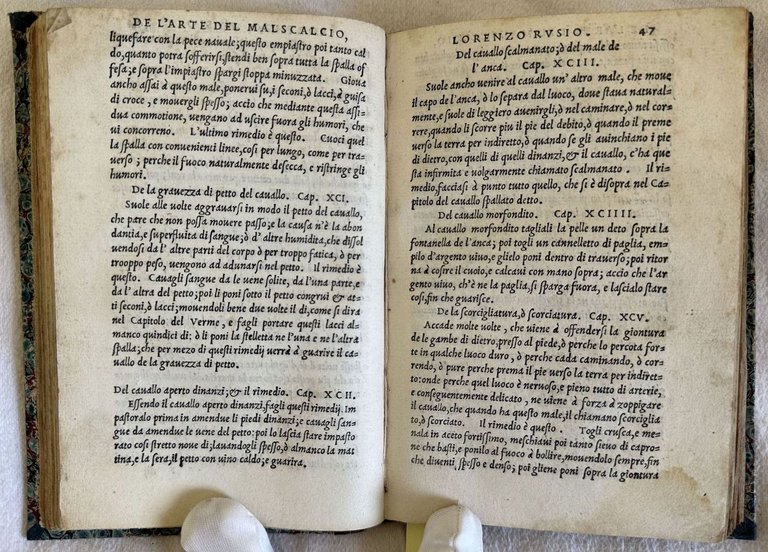 DE L'ARTE DEL MALSCALCIO,
liquefare con la pece nauale; questo empiastro poi tanto cal
do, quanto potra sofferirsi, stendi ben sopra tutta la spalla of
fesa; e sopra l'impiastro spargi stoppa minuzzata. Gioua
ancho assai à questo male, ponerui su, i seconi, ò lacci, à guisa
di croce, e mouergli spesso; accio che mediante questa assi-
dua commotione, vengano ad uscire fuora gli humori, che
ui concorreno. L'ultimo rimedio è questo. Cuoci quel
la spalla con conuenienti linee, cosi per lungo, come per tra-
uerso; perche il fuoco naturalmente desecca, e ristringe gli
humori.
De la grauezza di petto del cauallo. Cap. XCI.
Suole alle volte aggrauarsi in modo il petto del cauallo,
che pare che non possa mouere passo; e la causa n'è la abon
dantia, e superfluita di sangue; ò d'altre humidita, che dissol
uendosi da l'altre parti del corpo ò per troppo fatica, ò per
troppo peso, vengono ad adunarsi nel petto. Il rimedio è
questo. Cauagli sangue da le uene solite, da l'una parte, e
da l'altra del petto; poi li poni sotto il petto congrui & at-
ti seconi, ò lacci; mouendoli bene due volte il di, como si dira
nel Capitolo del Verme, e fagli portare questi lacci al
manco quindici di: ò li poni la stelletta ne l'una e ne l'altra
spalla; che per mezo di questi rimedij verrà à guarire il ca-
uallo de la grauezza di petto.
Del cauallo aperto dinanzi; & il rimedio. Cap. XCII.
Essendo il cauallo aperto dinanzi, fagli questi rimedij. Im
pastoralo prima in amendue li piedi dinanzi; e cauagli san-
gue da amendue le uene del petto: poi lo lascia stare impasto
rato cosi stretto noue di; lauandogli spesso, ò almanco la mat
tina, e la sera, il petto con uino caldo; e guarira.
LORENZO RVSIO. 47
Del cauallo scalmanato; ò del male de
l'anca. Cap. XCIII.
Suole ancho venire al cauallo un'altro male, che moue
il capo de l'anca, ò lo separa dal luoco, doue staua natural-
mente, e suole di leggiero auenirgli, ò nel caminare, ò nel cor-
rere, quando li scorre piu il pie del debito, ò quando il preme
verso la terra per indiretto, ò quando se gli auinchiano i pie
di dietro, con quelli di quelli dinanzi, & il cauallo, c'ha que
sta infirmita e uolgarmente chiamato scalmanato. Il ri-
medio, facciasi à punto tutto quello, che si è disopra nel Ca-
pitolo del cauallo spallato detto.
Del cauallo morfondito. Cap. XCIIII.
Al cauallo morfondito tagliali la pelle un deto sopra la
fontanella de l'anca; poi togli un cannelletto di paglia, em-
pilo d'argento uiuo, e glielo poni dentro di trauerso; poi ritor
na à cosire il cuoio, e calcaui con mano sopra; accio che l'ar-
gento uiuo, ch'è ne la paglia, si sparga fuora, e lascialo stare
cosi, fin che guarisce.
De la scorcigliatura, ò scorciatura. Cap. XCV.
Accade molte volte, che uiene à offendersi la giontura
de le gambe di dietro, presso al piede, ò perche lo percota for-
te in qualche luoco duro, ò perche cada caminando, ò cor-
rendo, ò pure perche prema il pie verso la terra per indiret-
to: onde perche quel luoco è neruoso, e pieno tutto di arterie,
e conseguentemente delicato, ne uiene à forza à zoppigare
il cauallo, che quando ha questo male, il chiamano scorciglia
to, ò scorciato. Il rimedio è questo. Togli crusca, e me-
nala in aceto fortissimo, meschiaui poi tanto sieuo di capro-
ne che basti, e ponilo al fuoco à bollire, mouendolo sempre, fin
che diuenti, spesso e denso; poi gliene poni sopra la giontura